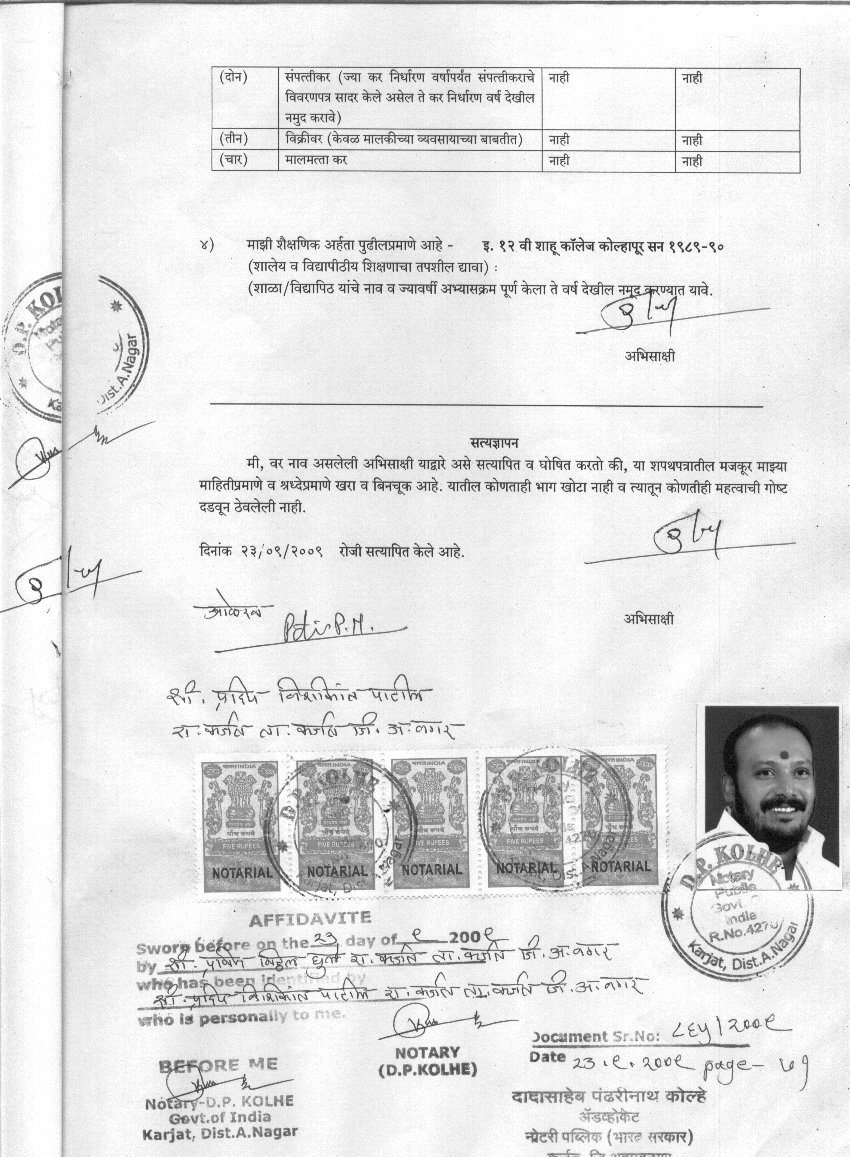 (दोन) संपत्तीकर (ज्या कर निर्धारण वर्षापर्यंत संपत्तीकराचे नाही नाही
विवरणपत्र सादर केले असेल ते कर निर्धारण वर्ष देखील
नमुद करावे)
(तीन) विक्रीवर (केवळ मालकीच्या व्यवसायाच्या बाबतीत) नाही नाही
(चार) मालमत्ता कर नाही नाही
४) माझी शैक्षणिक अर्हता पुढीलप्रमाणे आहे - इ. १२ वी शाहू कॉलेज कोल्हापूर सन १९८९-९०
(शालेय व विद्यापीठीय शिक्षणाचा तपशील द्यावा) :
(शाळा/विद्यापिठ यांचे नाव व ज्यावर्षी अभ्यासक्रम पूर्ण केला ते वर्ष देखील नमूद करण्यात यावे.
अभिसाक्षी
सत्यज्ञापन
मी, वर नाव असलेली अभिसाक्षी याद्वारे असे सत्यापित व घोषित करतो की, या शपथपत्रातील मजकूर माझ्या
माहितीप्रमाणे व श्रध्देप्रमाणे खरा व बिनचूक आहे. यातील कोणताही भाग खोटा नाही व त्यातून कोणतीही महत्वाची गोष्ट
दडवून ठेवलेली नाही.
दिनांक २३/०९/२००९ रोजी सत्यापित केले आहे.
अभिसाक्षी
ओळखत
Patil P.N.
श्री. प्रदिप निशीकांत पाटील
रा. कर्जत ता. कर्जत जि. अ. नगर
D.P. KOLHE
Dist.A.Nagar
भारत INDIA
पाँच रुपये
FIVE RUPEES
NOTARIAL
NOTARIAL
NOTARIAL
NOTARIAL
NOTARIAL
D.P. KOLHE
Notary
Public
Govt. of
India
R.No.4270
Karjat, Dist.A.Nagar
AFFIDAVITE
Sworn before on the 23 day of ९ 200९
by श्री. प्रविण विठ्ठल घुले रा. कर्जत ता. कर्जत जि. अ. नगर
who has been identified by
श्री. प्रदिप निशीकांत पाटील रा. कर्जत ता. कर्जत जि. अ. नगर
who is personally to me.
NOTARY
(D.P.KOLHE)
Document Sr.No: ८६५/२००९
Date 23.९.200९ page- ७१
BEFORE ME
Notary-D.P. KOLHE
Govt.of India
Karjat, Dist.A.Nagar
दादासाहेब पंढरीनाथ कोल्हे
ॲडव्होकेट
नोटरी पब्लिक (भारत सरकार)